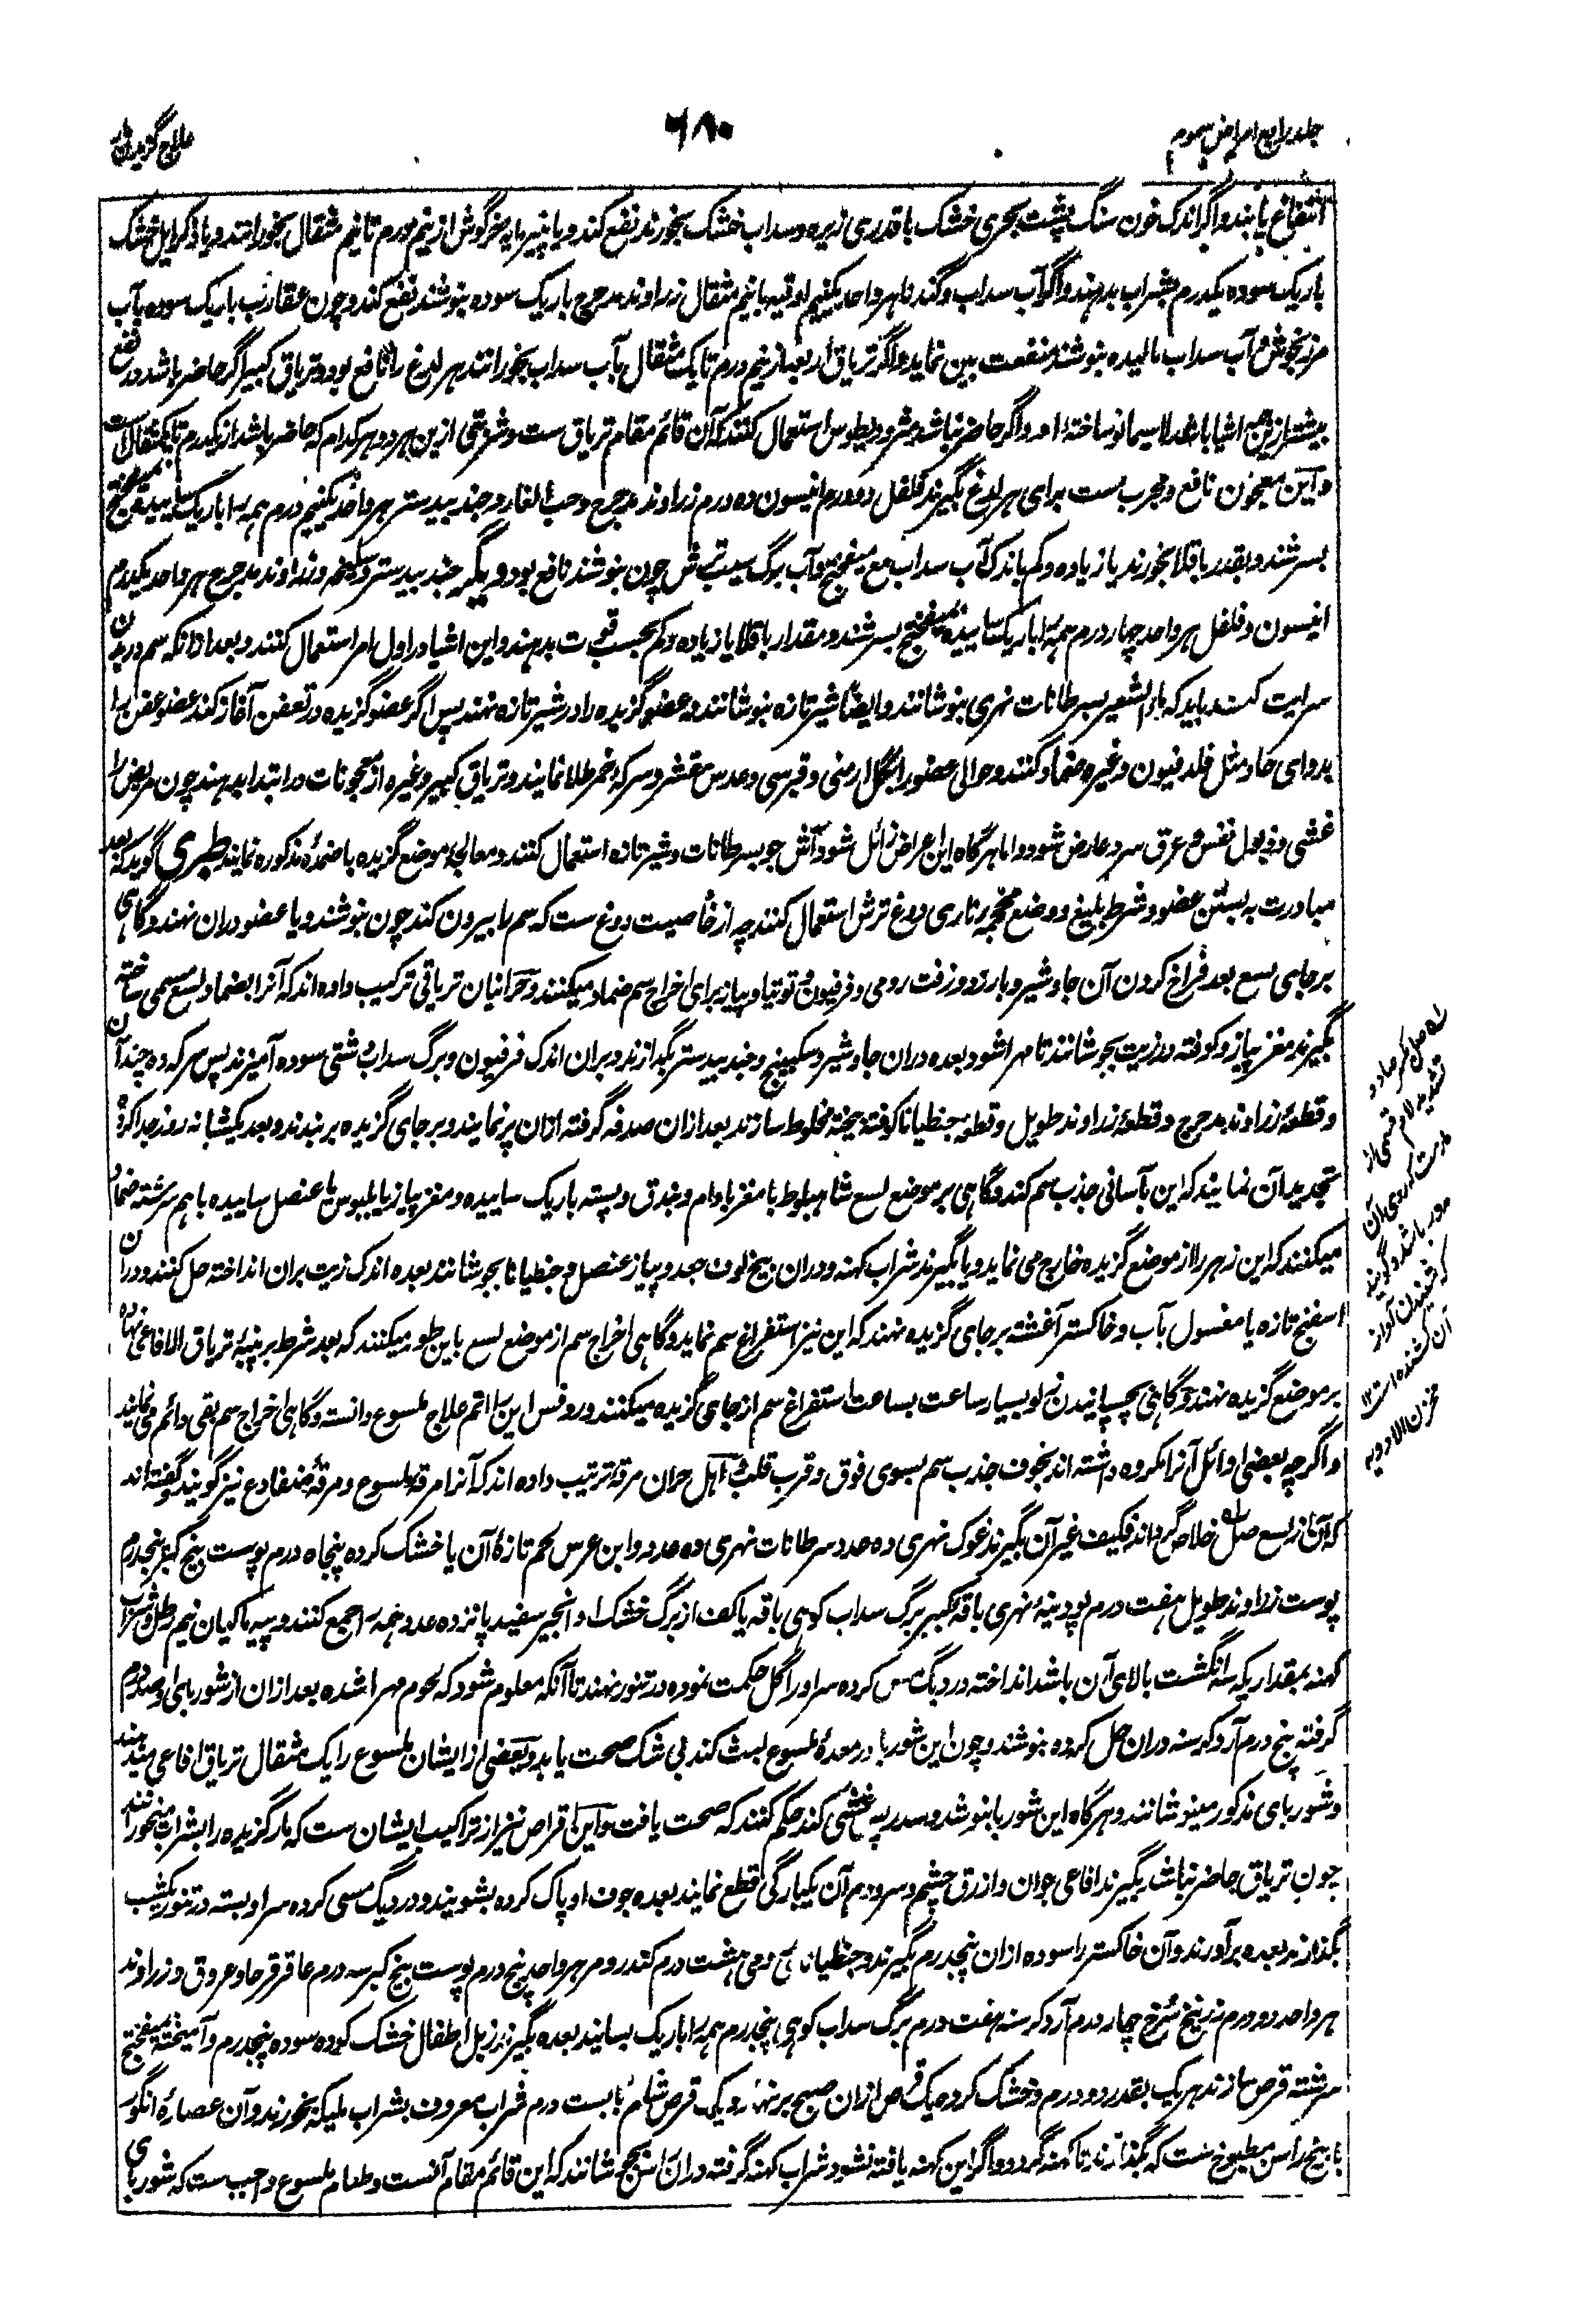 جلد رابع امراض سموم
۶۸۰
علاج گزیدن
انتفاع یابند و اگر اندک خون سنگ پشت بحری خشک با قدری زیره و سداب خشک بخورند نفع کند و یا پنیر مایه خرگوش از نیم درم تا نیم مثقال بخورانند و یا ذکر ایل خشک
باریک سوده یکدرم بشراب بدهند و اگر آب سداب و گندنا هر واحد یکنیم اوقیه با نیم مثقال زراوند مدحرج باریک سوده بنوشند نفع کند و چون عقارب باریک سوده بآب
مرزنجوش و آب سداب مالیده بنوشند منفعت بین نماید و اگر تریاق اربعه از نیم درم تا یک مثقال بآب سداب بخورانند هر لدغ را نافع بود و تریاق کبیر اگر حاضر باشد در نفع
بیشتر از همه اشیا باشد لاسیما نو ساخته او و اگر حاضر نباشد مثرودیطوس استعمال کنند که آن قائم مقام تریاق ست و شربتی ازین هر دو هر کدام که حاضر باشد از یکدرم تا یکمثقال ست
و این معجون نافع و مجرب ست برای هر لدغ بگیرند فلفل دو درم انیسون ده درم زراوند مدحرج و حب الغار و جندبیدستر هر واحد یکنیم درم همه را باریک ساییده بمیفختج
بسرشند و بقدر باقلا بخورند یا زیاده و کم باندک آب سداب مع میفختج و آب برگ سیب ترش چون بنوشند نافع بود و دیگر جندبیدستر و سلیخه و زراوند مدحرج هر واحد یکدرم
انیسون و فلفل هر واحد چهار درم همه را باریک ساییده بمیفختج بسرشند و مقدار باقلا یا زیاده و کم بحسب قوت بدهند و این اشیا در اول امر استعمال کنند و بعد ازانکه سم در بدن
سرایت کند باید که ماء الشعیر بسرطانات نهری بنوشانند و ایضاً شیر تازه بنوشانند و عضو گزیده را در شیر تازه نهند پس اگر عضو گزیده در تعفن آغاز کند عضو عفن را
بدوای حاد مثل فلدفیون و غیره ضماد کنند و حوالی عضو را بگل ارمنی و قبرسی و عدس مقشر و سرکه و خمر طلا نمایند و تریاق کبیر و غیره از معجونات در ابتدا بدهند چون مریض را
غشی و ذبول نفس و عرق سرد عارض شود و اما هرگاه این اعراض زائل شود آش جو بسرطانات و شیر تازه استعمال کنند و معالجهٔ موضع گزیده باضمدهٔ مذکوره نمایند طبری گوید که بعد
مبادرت به بستن عضو و شرط بلیغ و وضع محجمه ناری دوغ ترش استعمال کنند چه از خاصیت دوغ ست که سم را بیرون کند چون بنوشند و یا عضو دران نهند و گاهی
بر جای لسع بعد فراخ کردن آن جاوشیر و بارزد و زفت رومی و فرفیون و توتیا و پیاز برای اخراج سم ضماد میکنند و حرانیان تریاقی ترکیب داده اند که آنرا بضماد لسع مسمی ساخته
بگیرند مغز پیاز و کوفته در زیت بجوشانند تا مهرا شود بعده دران جاوشیر و سکبینج و جندبیدستر بگدازند و بران اندک فرفیون و برگ سداب دشتی سوده آمیزند پس سرکه ده چند آن
و قطعهٔ زراوند مدحرج و قطعهٔ زراوند طویل و قطعهٔ جنطیانا کوفته بیخته مخلوط سازند بعد ازان صدفه گرفته ازان پر نمایند و بر جای گزیده بر بندند و بعد یکشبانه روز جدا کرده
تجدید آن نمایند که این بآسانی جذب سم کند و گاهی بر موضع لسع شاهبلوط با مغز بادام و بندق و پسته باریک ساییده و مغز پیاز یا بلبوس یا عنصل ساییده باهم سرشته ضماد
میکنند که این زهر را از موضع گزیده خارج می نماید و یا بگیرند شراب کهنه و دران بیخ لوف جعد و پیاز عنصل و جنطیانا بجوشانند بعده اندک زیت بران انداخته حل کنند و دران
اسفنج تازه یا مغسول بآب و خاکستر آغشته بر جای گزیده نهند که این نیز استفراغ سم نماید و گاهی اخراج سم از موضع لسع باین طور میکنند که بعد شرط بر پنبه تریاق الافاعی نهاده
بر موضع گزیده نهند و گاهی بچسپانیدن زلو بسیار ساعت بساعت استفراغ سم از جای گزیده میکنند و روفس این را اتم علاج ملسوع دانسته و گاهی اخراج سم بقی دائم می نمایند
و اگرچه بعضی اوائل آنرا مکروه داشته اند بخوف جذب سم بسوی فوق و قرب قلب و اهل حران مرقه ترتیب داده اند که آنرا مرقهٔ ملسوع و مرقهٔ ضفادع نیز گویند و گفته اند
که آن از لسع صل خلاص گرداند فکیف غیر آن بگیرند غوک نهری ده عدد سرطانات نهری ده عدد و ابن عرس لحم تازهٔ آن یا خشک کرده پنجاه درم پوست بیخ کبر پنجدرم
پوست زراوند طویل هفت درم پودینهٔ نهری باقهٔ کبیر برگ سداب کوهی باقه یا کف از برگ خشک او انجیر سفید پانزده عدد همه را جمع کنند و پیه ماکیان نیم رطل و شراب
کهنه بمقداریکه سه انگشت بالای آن باشد انداخته در دیگ مس کرده سر او را گل حکمت نموده در تنور نهند تا آنکه معلوم شود که لحوم مهرا شده بعد ازان از شوربای او صد درم
گرفته پنج درم آرد کرسنه دران حل کرده بنوشند و چون این شوربا در معدهٔ ملسوع لبث کند بی شک صحت یابد و بعضی از ایشان ملسوع را یک مثقال تریاق افاعی میدهند
و شوربای مذکور مینوشانند و هرگاه این شوربا بنوشد و سدر یه غشی کند حکم کنند که صحت یافت و این اقراص نیز از تراکیب ایشان ست که مار گزیده را بشراب میخورانند
چون تریاق حاضر نباشد بگیرند افاعی جوان و ازرق چشم و سر و دم آن یکبارگی قطع نمایند بعده جوف او پاک کرده بشویند و در دیگ مسی کرده سر او بسته در تنور یکشب
بگذارند بعده برآورند و آن خاکستر را سوده ازان پنجدرم بگیرند و جنطیانای رومی هشت درم کندر و مر هر واحد پنج درم پوست بیخ کبر سه درم عاقرقرحا و عروق و زراوند
هر واحد دو درم زرنیخ سرخ چهار درم آرد کرسنه هفت درم برگ سداب کوهی پنجدرم همه را باریک بسایند بعده بگیرند زبل اطفال خشک کرده سوده پنجدرم و آمیخته بمیفختج
سرشته قرص سازند هر یک بقدر دو درم و خشک کرده یک قرص ازان صبح بر نهار و یکی قرص شام با بست درم شراب معروف بشراب ملیکه بخورند و آن عصارهٔ انگور
با بیخ راسن مطبوخ ست که بگذارند تا کهنه گردد و اگر این کهنه یافته نشود شراب کهنه گرفته دران راسن بجوشانند که این قائم مقام آنست و طعام ملسوع واجب ست که شوربای
له صل بکسر صاد و
تشدید لام قسمی از
مارست که روی آن
مدور باشد و گویند
که شنیدن آواز
آن کشنده است ۱۲
مخزن الادویه